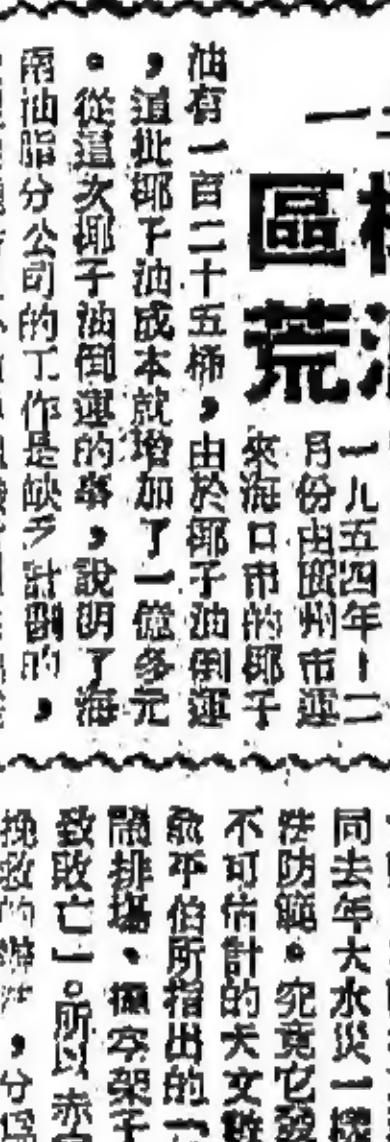 區荒
一九五四年十二
月份由廣州市運
來海口市的椰子
油有一百二十五桶,由於椰子油倒運
,這批椰子油成本就增加了一億多元
。從這次椰子油倒運的事,說明了海
南油脂分公司的工作是缺乏計劃的,
同去年大水災一樣
防範。究竟它
不可估計的天文數
俞平伯所指出的「
鬧排場、擺空架子
致敗亡」。所以
挽救的